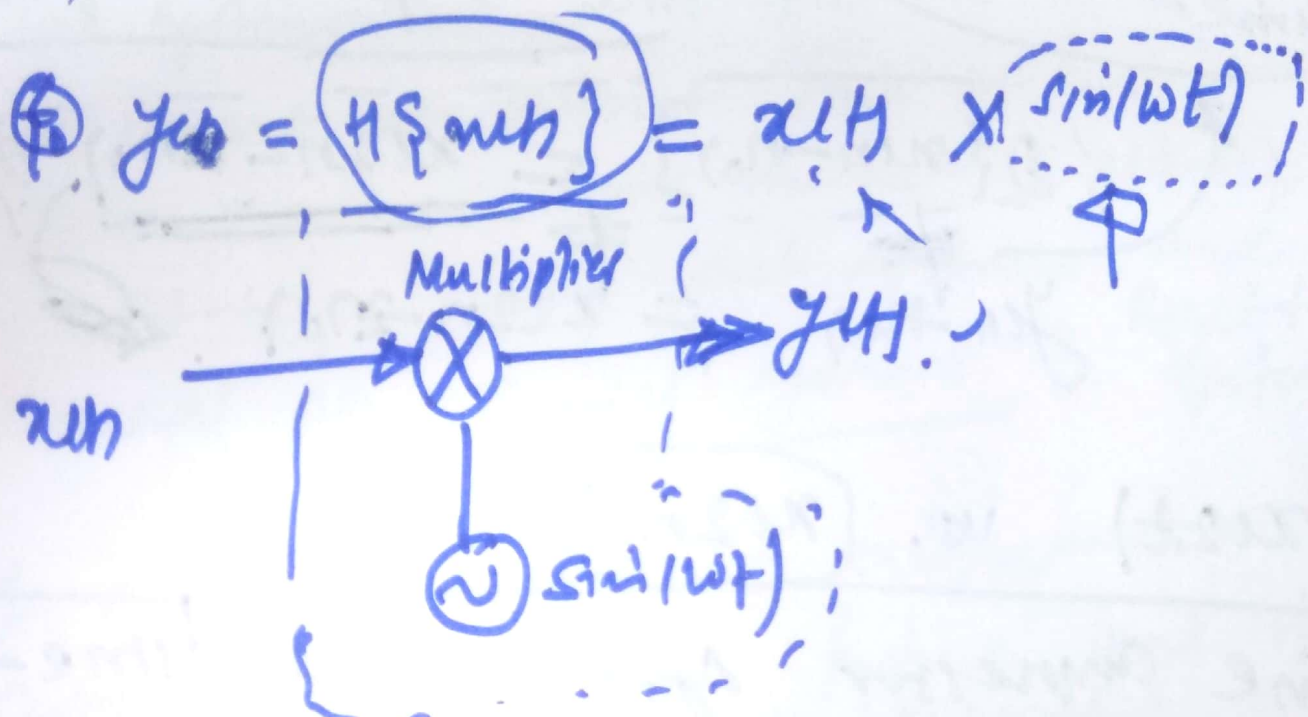 y(t) = H{x(t)} = x(t) × sin(ωt)
Multiplier
y(t).
x(t)
~ sin(ωt)